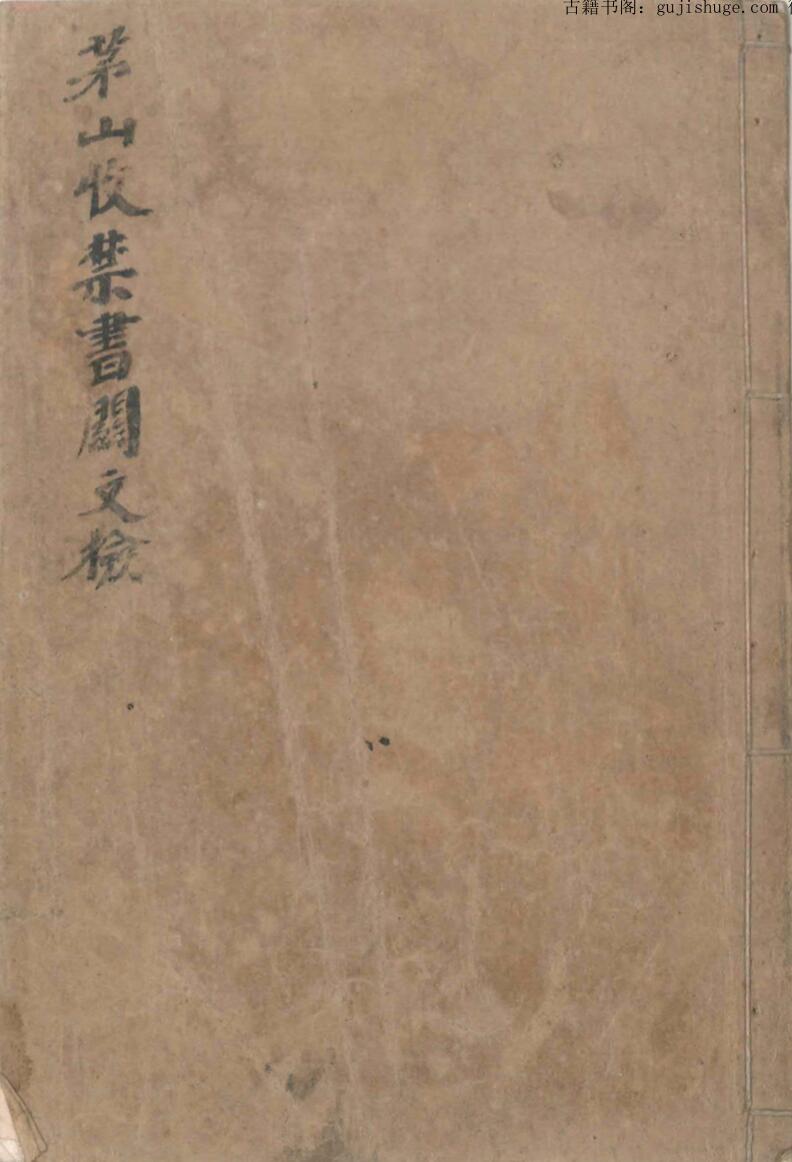 古籍书阁：gujishuge.com
茅山收禁書關文檢